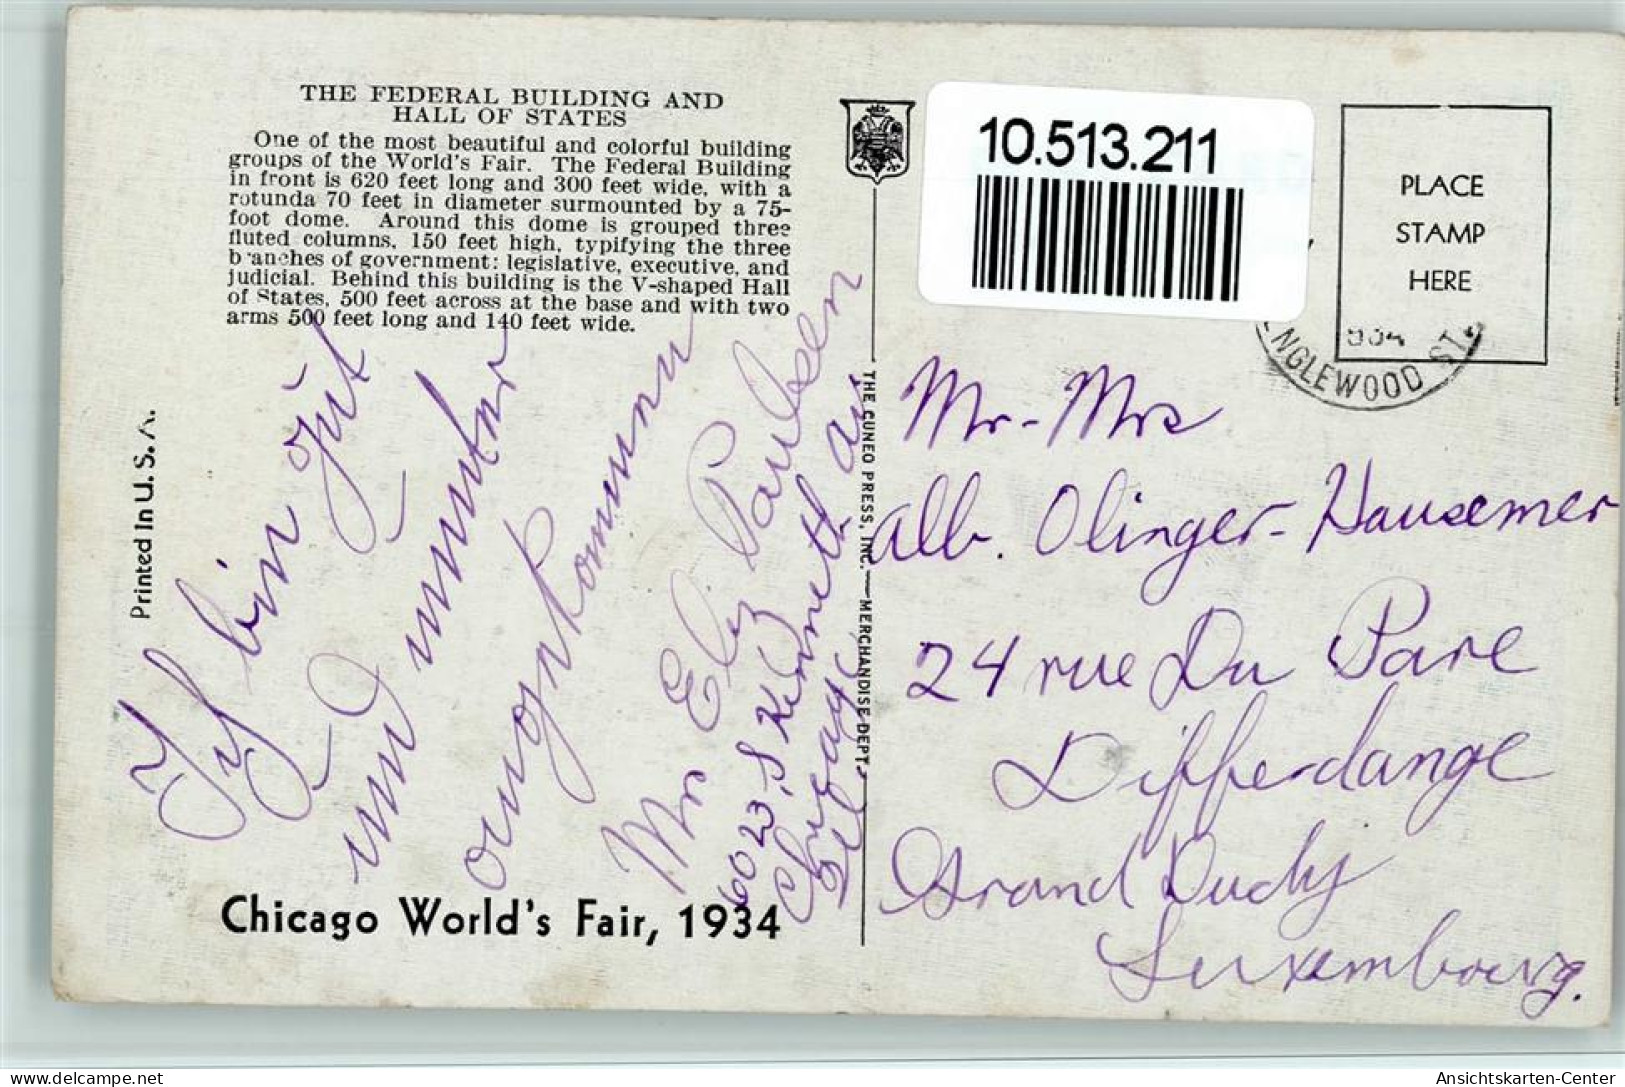 THE FEDERAL BUILDING AND
HALL OF STATES
One of the most beautiful and colorful building
groups of the World's Fair. The Federal Building
in front is 620 feet long and 300 feet wide, with a
rotunda 70 feet in diameter surmounted by a 75-
foot dome. Around this dome is grouped three
fluted columns, 150 feet high, typifying the three
branches of government: legislative, executive, and
judicial. Behind this building is the V-shaped Hall
of States, 500 feet across at the base and with two
arms 500 feet long and 140 feet wide.
Printed In U. S. A.
Ich bin gut
und munter
angekommen
Mrs Eliz Paulsen
6023, S Kenneth av
Chicago
Chicago World's Fair, 1934
THE CUNEO PRESS, INC. — MERCHANDISE DEPT.
10.513.211
PLACE
STAMP
HERE
934
ENGLEWOOD ST.
Mr - Mrs
Alb. Olinger - Hausemer
24 rue Du Parc
Differdange
Grand Duchy
Luxembourg.
Ansichtskarten-Center
hier klicken / click here: https://www.ansichtskarten-center.de